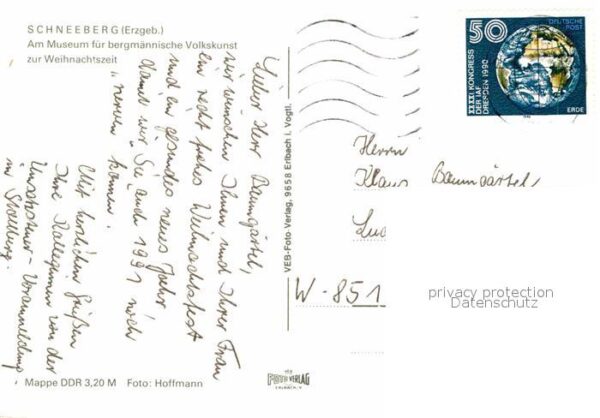 SCHNEEBERG (Erzgeb.)
Am Museum für bergmännische Volkskunst
zur Weihnachtszeit
Lieber Herr Baumgärtel,
wir wünschen Ihnen und Ihrer Frau
ein recht frohes Weihnachtsfest
und ein gesundes neues Jahr,
damit wir Sie auch 1991 noch
"nerven können".
Mit herzlichen Grüßen
Ihre Kolleginnen von der
in Stollberg.
Mappe DDR 3,20 M Foto: Hoffmann
VEB-Foto Verlag, 9658 Erlbach i. Vogtl.
FOTO VERLAG
50
DEUTSCHE
POST
XXXXI. KONGRESS
DER IAF
DRESDEN 1990
ERDE
1990
Herrn
Klaus Baumgärtel
W-851
privacy protection
Datenschutz